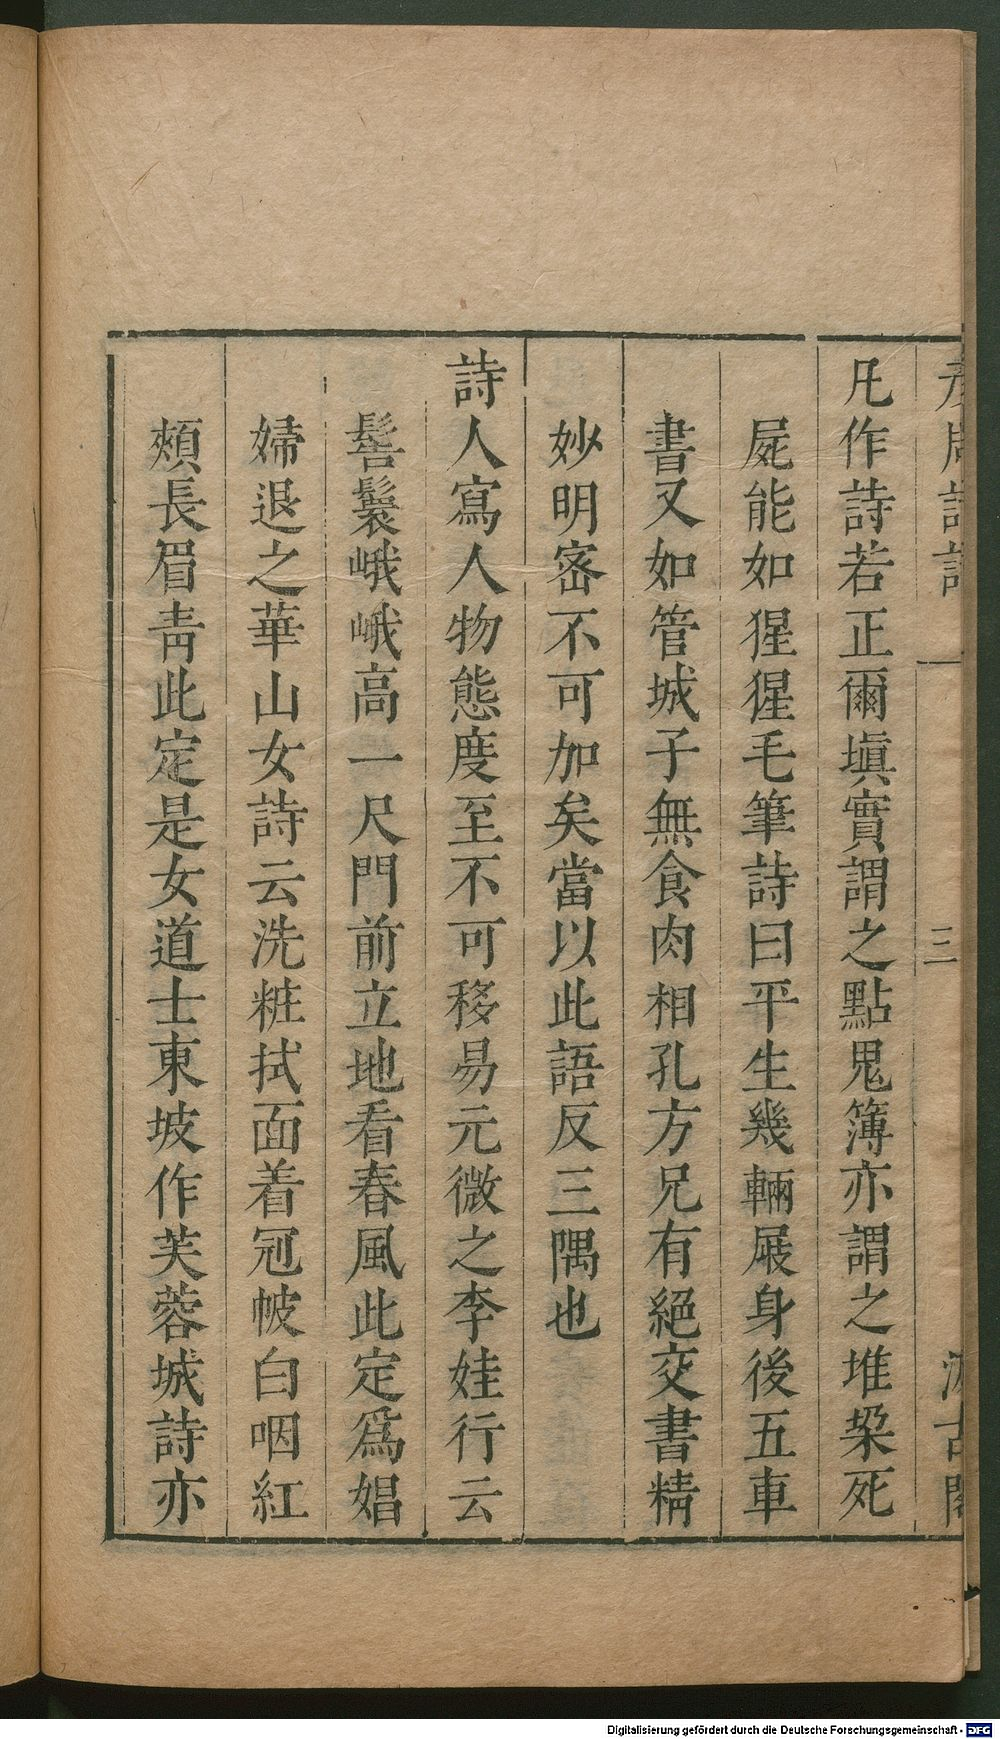 凡作詩若正爾塡實謂之點鬼簿亦謂之堆垜死
屍能如猩猩毛筆詩曰平生幾輛屐身後五車
書又如管城子無食肉相孔方兄有絕交書精
妙明密不可加矣當以此語反三隅也
詩人寫人物態度至不可移易元微之李娃行云
髻鬟峨峨高一尺門前立地看春風此定爲娼
婦退之華山女詩云洗粧拭面着冠帔白咽紅
頰長眉靑此定是女道士東坡作芙蓉城詩亦
三
Digitalisierung gefördert durch die Deutsche Forschungsgemeinschaft - DFG